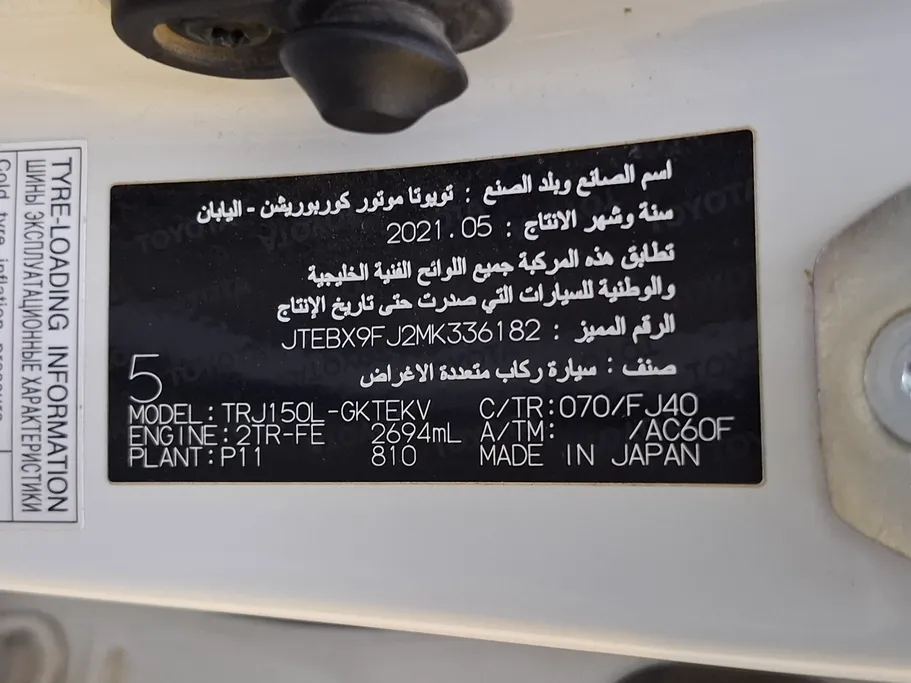 اسم الصانع وبلد الصنع : تويوتا موتور كوربوريشن - اليابان
سنة وشهر الانتاج : 2021.05
تطابق هذه المركبة جميع اللوائح الفنية الخليجية
والوطنية للسيارات التي صدرت حتى تاريخ الإنتاج
الرقم المميز : JTEBX9FJ2MK336182
صنف : سيارة ركاب متعددة الاغراض
5
MODEL:TRJ150L-GKTEKV C/TR:070/FJ40
ENGINE:2TR-FE 2694mL A/TM: /AC60F
PLANT:P11 810 MADE IN JAPAN
TYRE-LOADING INFORMATION
ШИНЫ ЭКСПЛУАТАЦИОННЫЕ ХАРАКТЕРИСТИКИ
Cold tyre inflation pressure